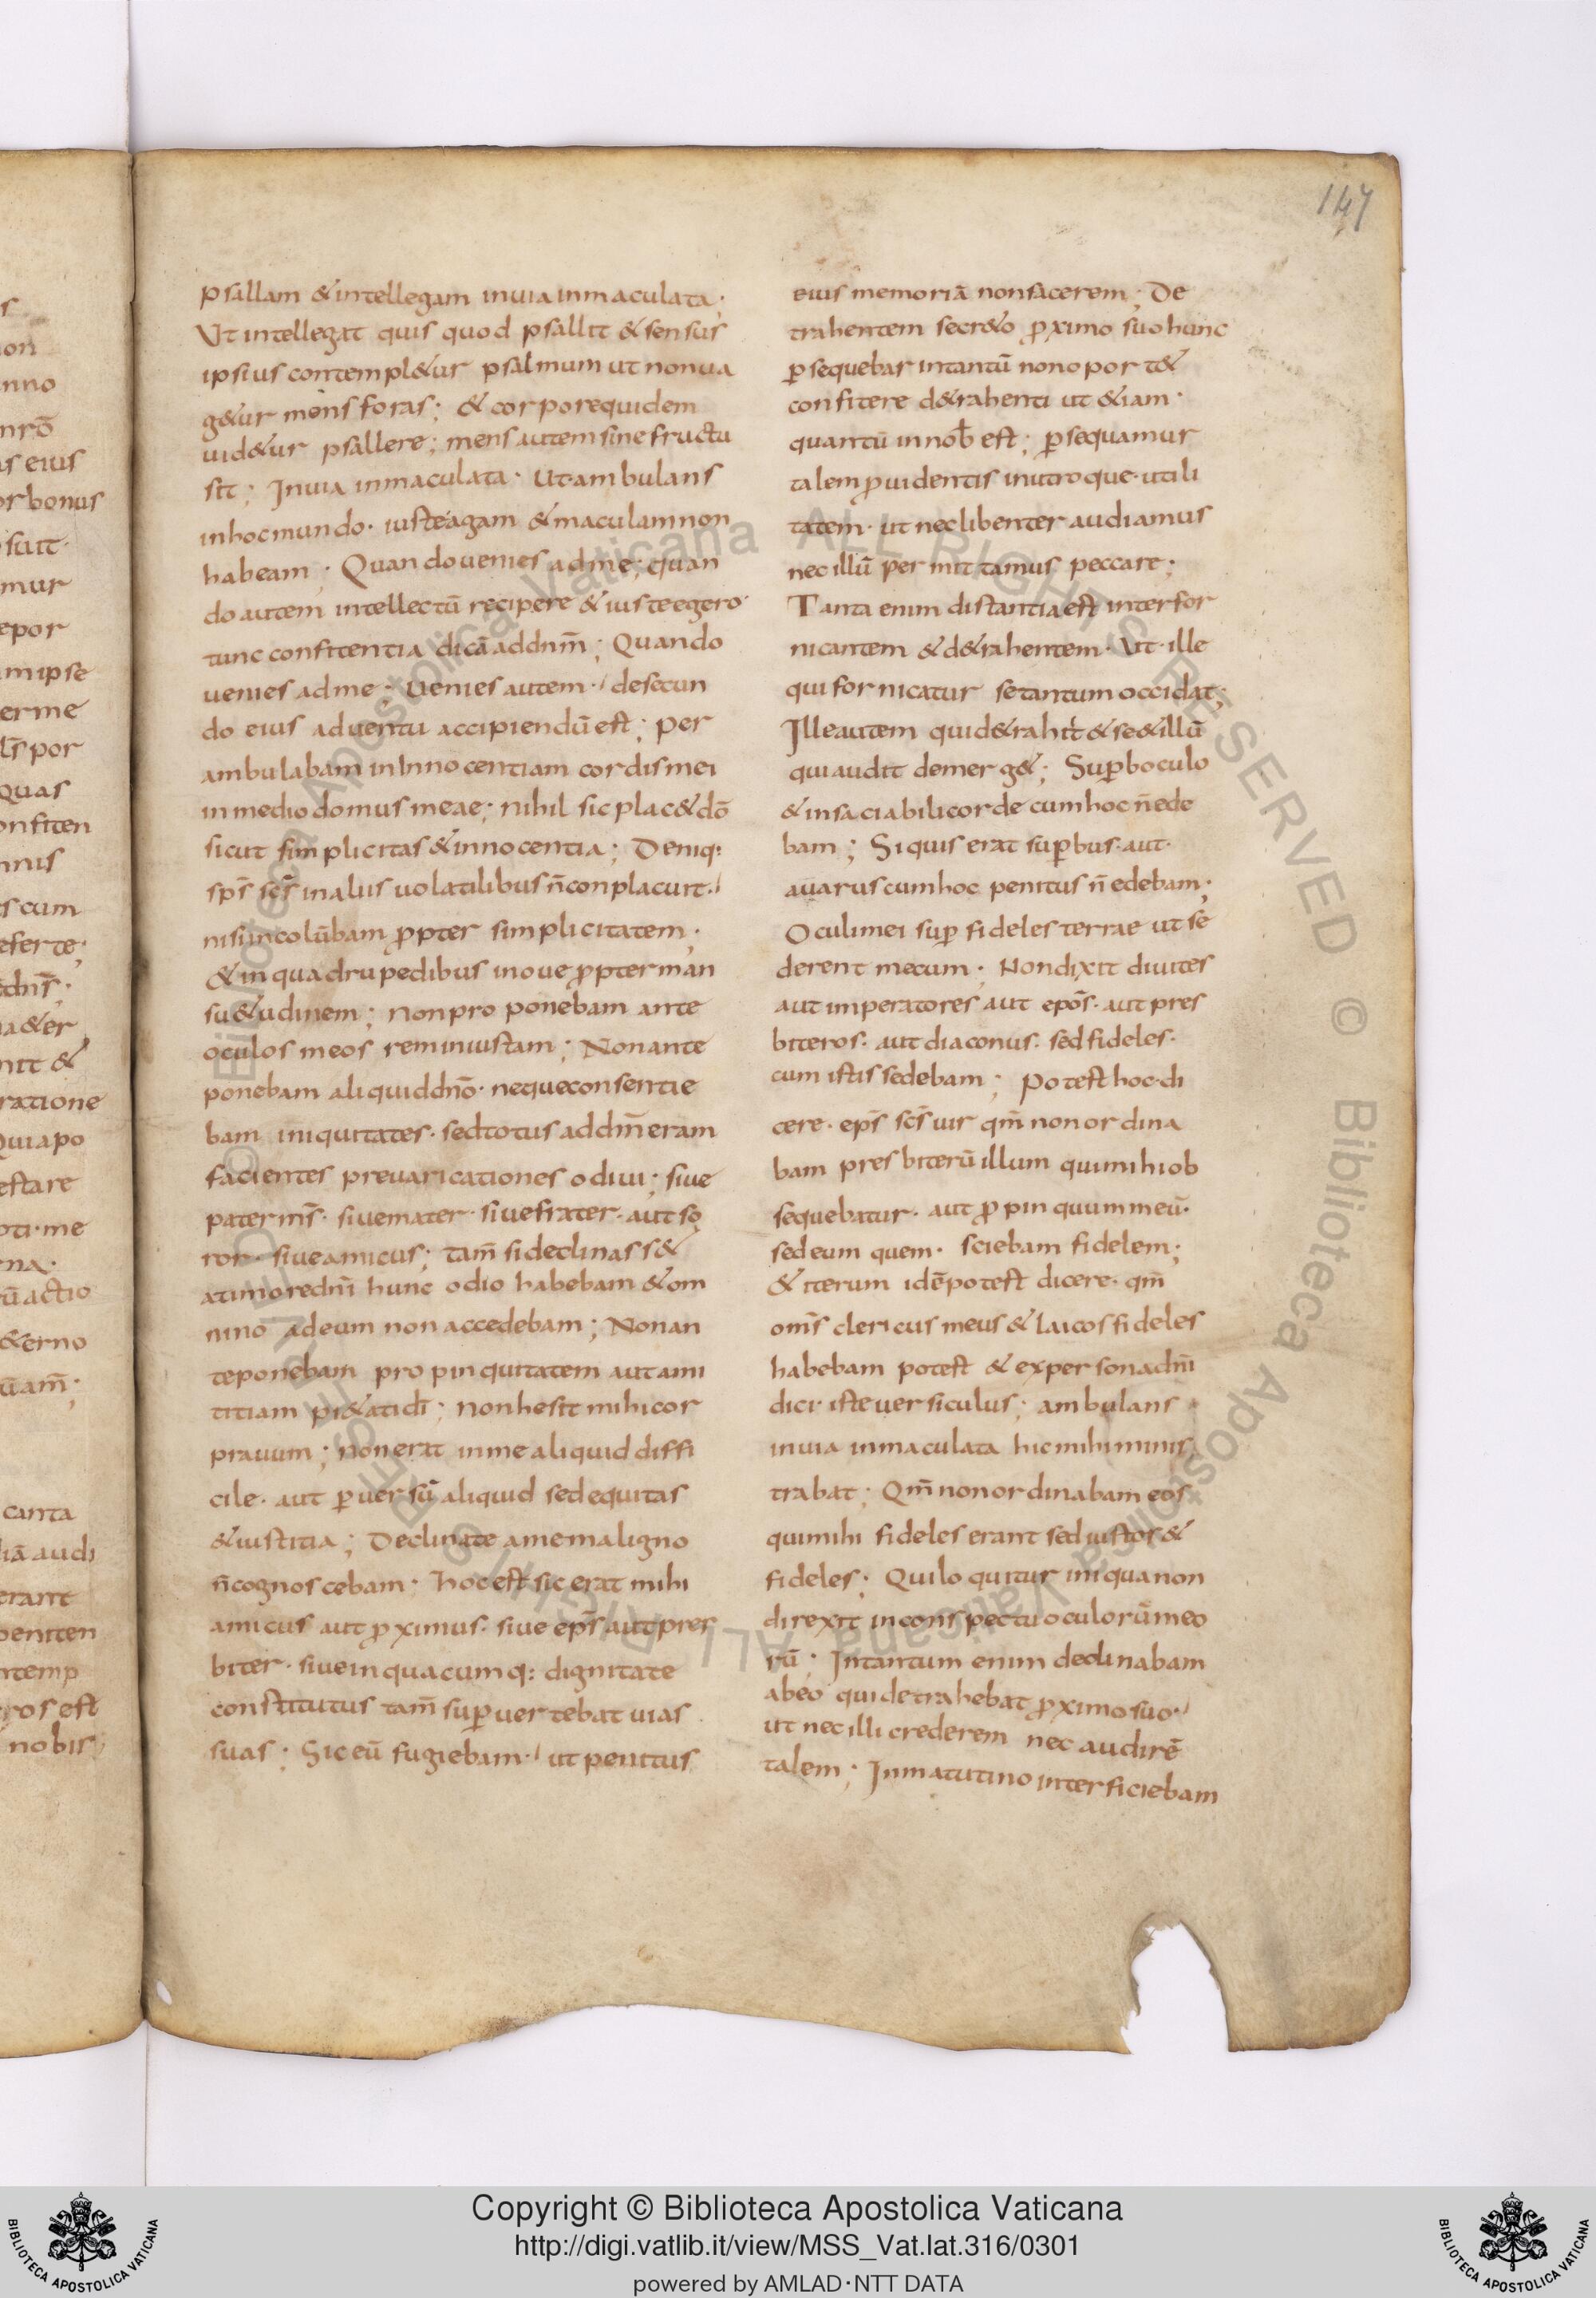 147
psallam & intellegam in uia inmaculata;
Ut intellegat quis quod psallit & sensus
ipsius contempl&ur psalmum ut non ua
g&ur mens foras; & corpore quidem
uid&ur psallere; mens autem sine fructu
sit; In uia inmaculata. Ut ambulans
in hoc mundo. iuste agam & maculam non
habeam; Quando uenies ad me; quan
do autem intellectū recipere & iuste egero.
tunc confitentia dicā ad dn̄m; Quando
uenies ad me. Uenies autem. de secun
do eius aduentu accipiendū est; per
ambulabam in innocentiam cordis mei
in medio domus meae; nihil sic plac& dō
sicut simplicitas & innocentia; Deniq:
sp̄s sc̄s in aliis uolatilibus n̄ conplacuit.
nisi in colūbam ꝓpter simplicitatem;
& in quadrupedibus in oue ꝓpter man
su&udinem; non proponebam ante
oculos meos rem iniustam; Non ante
ponebam aliquid dn̄o. neque consentie
bam iniquitates. sed totus ad dn̄m eram
facientes preuaricationes odiui; siue
pater m̄s. siue mater. siue frater. aut so
ror. siue amicus; tam̄ si declinass&
a timore dn̄i hunc odio habebam & om
nino ad eum non accedebam; Non an
teponebam propinquitatem aut ami
titiam pi&ati dī; non hesit mihi cor
prauum; non erat in me aliquid diffi
cile. aut ꝑuersū aliquid sed equitas
& iustitia; Declinate a me maligno
n̄ cognoscebam; hoc est sic erat mihi
amicus aut ꝓximus. siue ep̄s aut pres
biter. siue in quacumq: dignitate
constitutus tam̄ suꝑuertebat uias
suas; Sic eū fugiebam. ut penitus
eius memoriā non facerem; De
trahentem secr&o ꝓximo suo hunc
ꝑsequebar in tantū non oport&
confitere d&rahenti ut &iam.
quantū in nob̄ est; ꝑsequamur
talem ꝓuidentis in utroque utili
tatem. ut nec libenter audiamus
nec illū permittamus peccare;
Tanta enim distantia est inter for
nicantem & d&rahentem. Ut ille
qui fornicatur se tantum occidat;
Ille autem qui d&rahit & se & illū
qui audit demerg&; Suꝑbo oculo
& insaciabili corde cum hoc n̄ ede
bam; Si quis erat suꝑbus. aut.
auarus cum hoc penitus n̄ edebam;
Oculi mei suꝑ fideles terrae ut se
derent mecum; Non dixit diuites
aut imperatores aut epōs. aut pres
biteros. aut diaconus. sed fideles.
cum istis sedebam; Potest hoc di
cere. ep̄s sc̄s uir qm̄ non ordina
bam presbiterū illum qui mihi ob
sequebatur. aut ꝓpinquum meū.
sed eum quem. sciebam fidelem;
& iterum idē potest dicere. qm̄
om̄s clericus meus & laicos fideles
habebam potest & ex persona dn̄i
dici. iste uersiculus; ambulans
in uia inmaculata hic mihi minis
trabat; Qm̄ non ordinabam eos
qui mihi fideles erant sed iustos &
fideles; Qui loquitur iniqua non
direxit in conspectu oculorū meo
rū; In tantum enim declinabam
ab eo qui detrahebat ꝓximo suo.
ut nec illi crederem nec audirē
talem; In matutino interficiebam
Copyright © Biblioteca Apostolica Vaticana
http://digi.vatlib.it/view/MSS_Vat.lat.316/0301
powered by AMLAD·NTT DATA